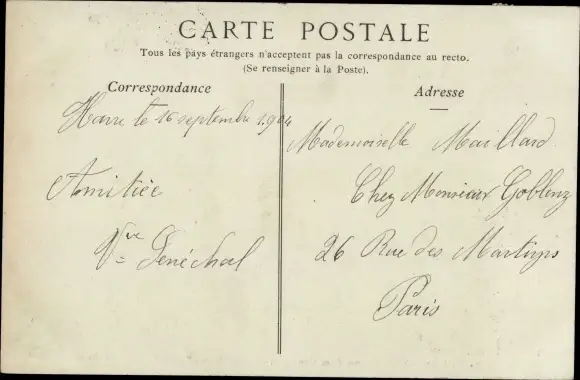 CARTE POSTALE
Tous les pays étrangers n'acceptent pas la correspondance au recto.
(Se renseigner à la Poste).
Correspondance
Havre le 16 septembre 1904
Amitiée
Vve Sénéchal
Adresse
Mademoiselle Maillard
Chez Monsieur Goblenz
26 Rue des Martyrs
Paris